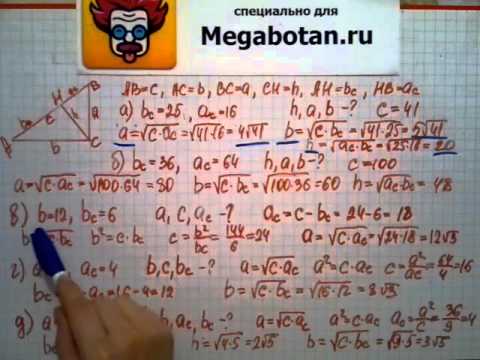 специально для
Megabotan.ru
B
H
ac
bc
c
h
a
A
b
C
AB=c, AC=b, BC=a, CH=h, AH=bc, HB=ac
а) bc=25, ac=16 h, a, b -? c=41
a=√c·ac=√41·16=4√41 b=√c·bc=√41·25=5√41
h=√ac·bc=√25·16=20
б) bc=36, ac=64 h, a, b -? c=100
a=√c·ac=√100·64=80 b=√c·bc=√100·36=60 h=√ac·bc=48
в) b=12, bc=6 a, c, ac -? ac=c-bc=24-6=18
b=√c·bc b²=c·bc c=b²/bc=144/6=24 a=√c·ac=√24·18=12√3
г) a ac=4 b, c, bc -? a=√c·ac a²=c·ac c=a²/ac=64/4=16
bc -ac=16-4=12 b=√c·bc=√16·12=8√3
д) a b, ac, bc -? a=√c·ac a²=c·ac ac=a²/c=36/9=4
bc h=√4·5=2√5 b=√c·bc=√9·5=3√5